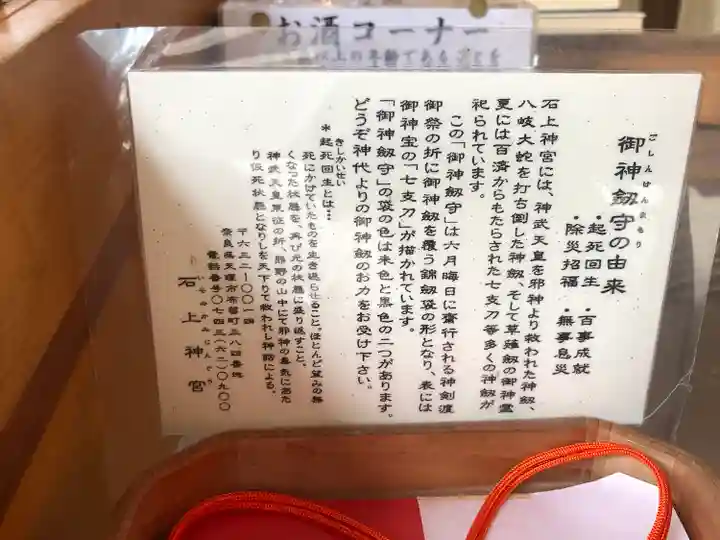 お酒コーナー
ごしんけんまもり
御神劔守の由来
・起死回生 ・百事成就
・除災招福 ・無事息災
石上神宮には、神武天皇を邪神より救われた神劔、
八岐大蛇を打ち倒した神劔、そして草薙劔の御神霊
更には百済からもたらされた七支刀等多くの神劔が
祀られています。
この「御神劔守」は六月晦日に齋行される神剣渡
御祭の折に御神劔を覆う錦劔袋の形となり、表には
御神宝の「七支刀」が描かれています。
「御神劔守」の袋の色は朱色と黒色の二つがあります。
どうぞ神代よりの御神劔のお力をお受け下さい。
きしかいせい
＊起死回生とは…
死にかけていたものを生き返らせること。ほとんど望みの無
くなった状態を、再び元の状態に盛り返すこと。
神武天皇東征の折、熊野の山中にて邪神の毒気にあた
り仮死状態となりしを天下りて救われし神話による。
〒六三二-〇〇一四
奈良県天理市布留町三八四番地
電話番号〇七四三(六二)〇九〇〇
いそのかみじんぐう
石上神宮